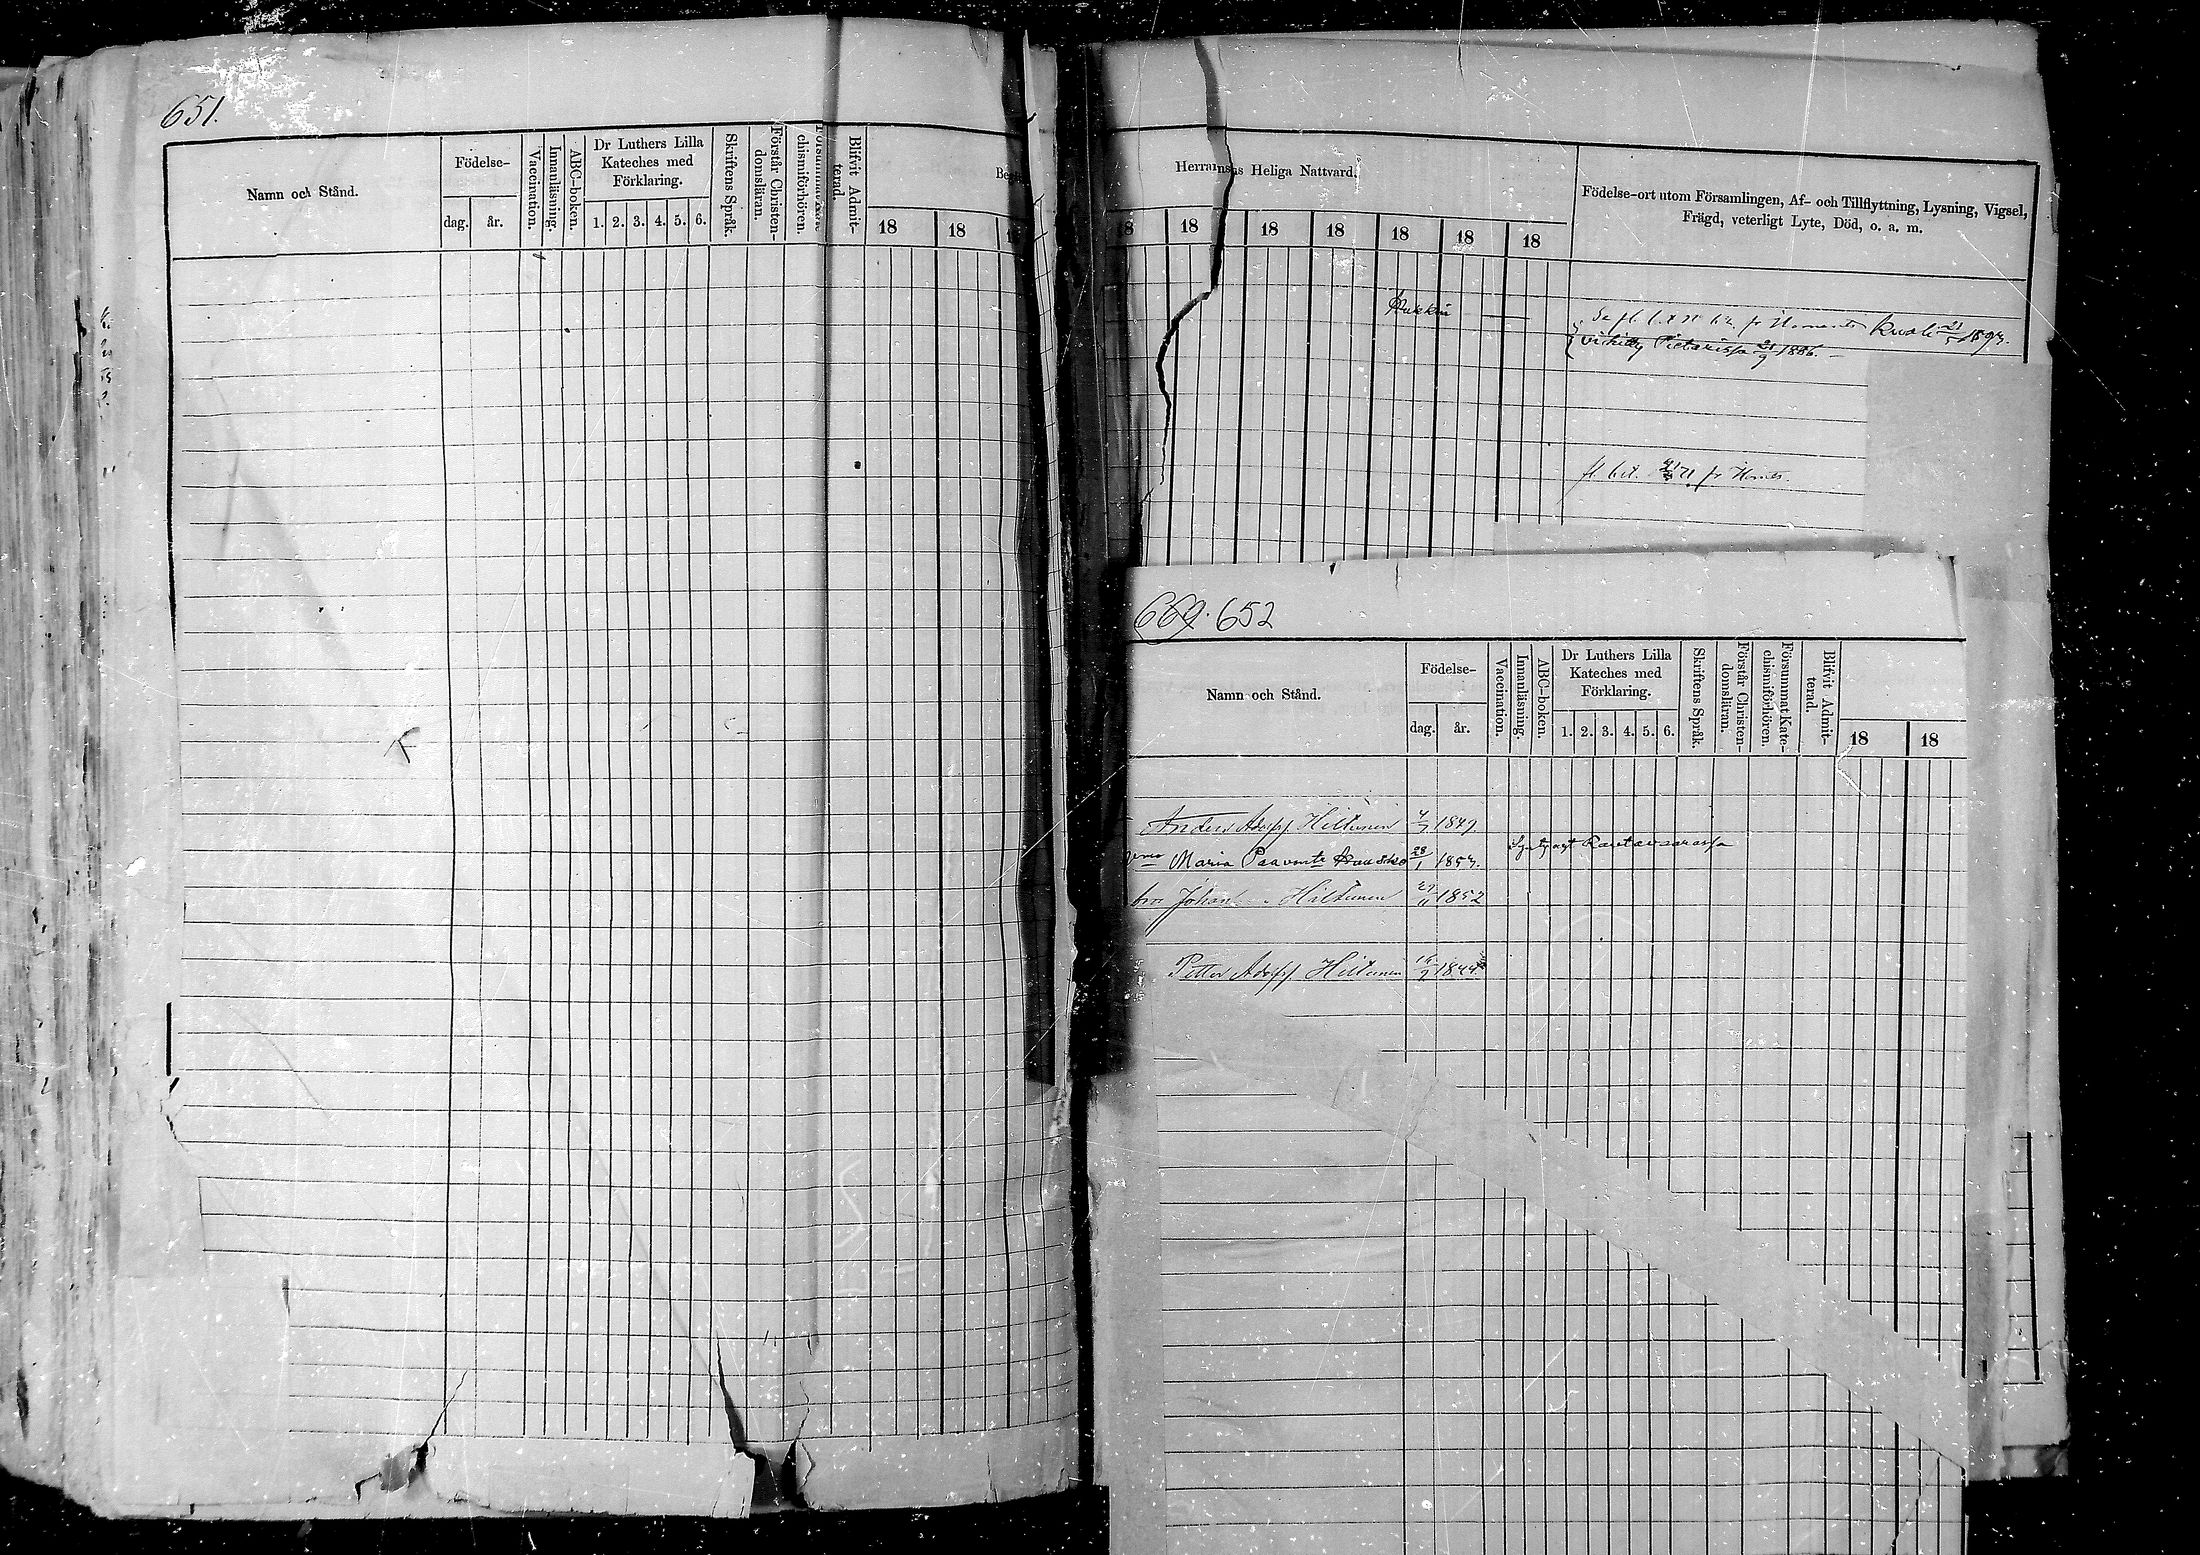 651.
Namn och Stånd.
Födelse-
dag. år.
Vaccination.
Innanläsning.
ABC-boken.
Dr Luthers Lilla
Kateches med
Förklaring.
1. 2. 3. 4. 5. 6.
Skriftens Språk.
Förstår Christen-
domsläran.
Försummat Kate-
chismiförhören.
Blifvit Admit-
terad.
18 18
Herrans Heliga Nattvard.
18 18 18 18 18 18 18
Födelse-ort utom Församlingen, Af- och Tillflyttning, Lysning, Vigsel,
Frägd, veterligt Lyte, Död, o. a. m.
Kuoli 21/5 1893.
vihitty Pietarissa 1886.
669. 652
Namn och Stånd.
Födelse-
dag. år.
Vaccination.
Innanläsning.
ABC-boken.
Dr Luthers Lilla
Kateches med
Förklaring.
1. 2. 3. 4. 5. 6.
Skriftens Språk.
Förstår Christen-
domsläran.
Försummat Kate-
chismiförhören.
Blifvit Admit-
terad.
18 18
Anders Adolfsf. Hiltunen 1849
Maria Paavontr 28/1 1853.
bror Johan Hiltunen 1852
Petter Adolfsf. Hiltunen 1844